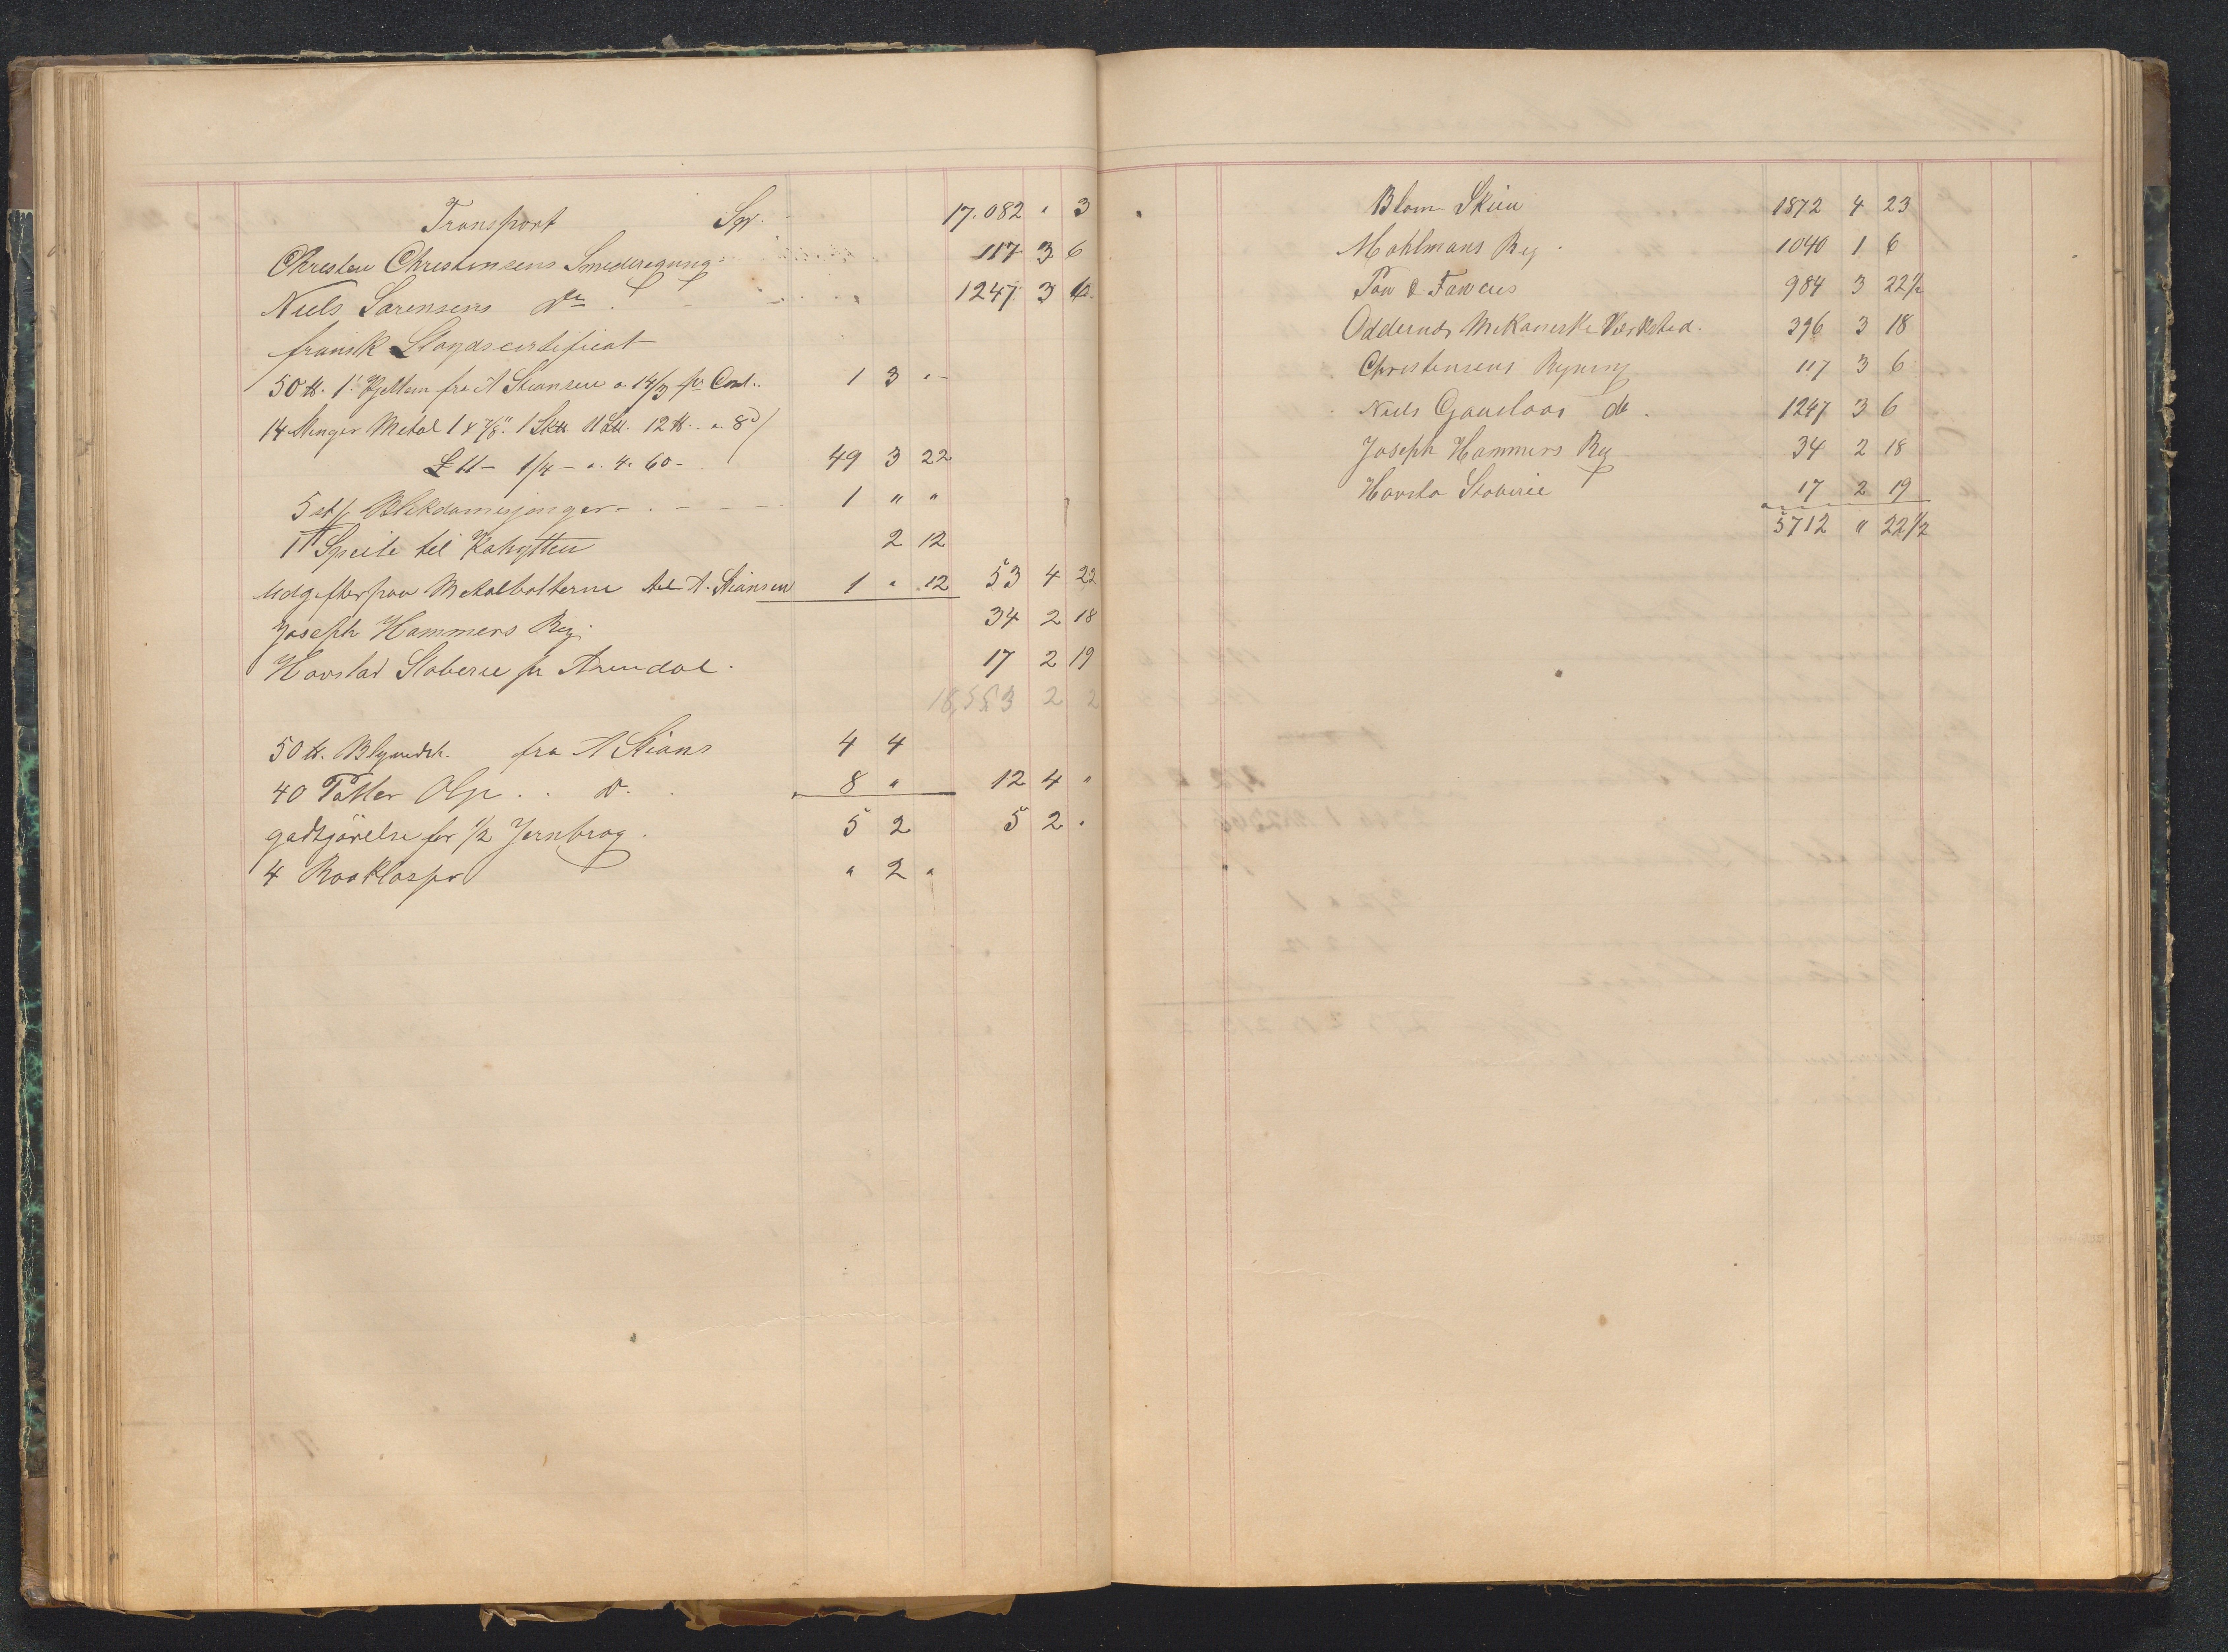 Transport Sp. 17.082 " 3
Christen Christensens Smederegning 117 3 6
Niels Sørensens do 1247 3 6
fransk Lloydscertificat
50 ℔. 1" Kjetten fra A Stiansen a 14/3 pr Cent. 1 3 "
14 Stenger Metal 1 & 7/8" 1 Sk℔ 11 L℔. 12 ℔. a 8d
£ 11 - 1/4 - a. 4. 60 - 49 3 22
5 st. Blikdamesjonger 1 " "
1 Speile til Kahytten 2 12
Udgifter paa Metalbolterne A. Stiansen 1 " 12 53 4 22
Joseph Hammers Reg. 34 2 18
Havstad Støberie pr Arendal. 17 2 19
18,553 2 2
50 ℔. fra A Stians 4 4
40 Potter Olje do. 8 " 12 4 "
godtgjørelse for 1/2 5 2 5 2 "
4 " 2 "
Blom Skien 1872 4 23
Mohlmans Reg. 1040 1 6
& Fawcus 984 3 22 1/2
Oddernes Mekaniske Værksted. 396 3 18
Christensens Regning 117 3 6
Niels do. 1247 3 6
Joseph Hammers Reg 34 2 18
Havsta Støberie 17 2 19
5712 " 22 1/2